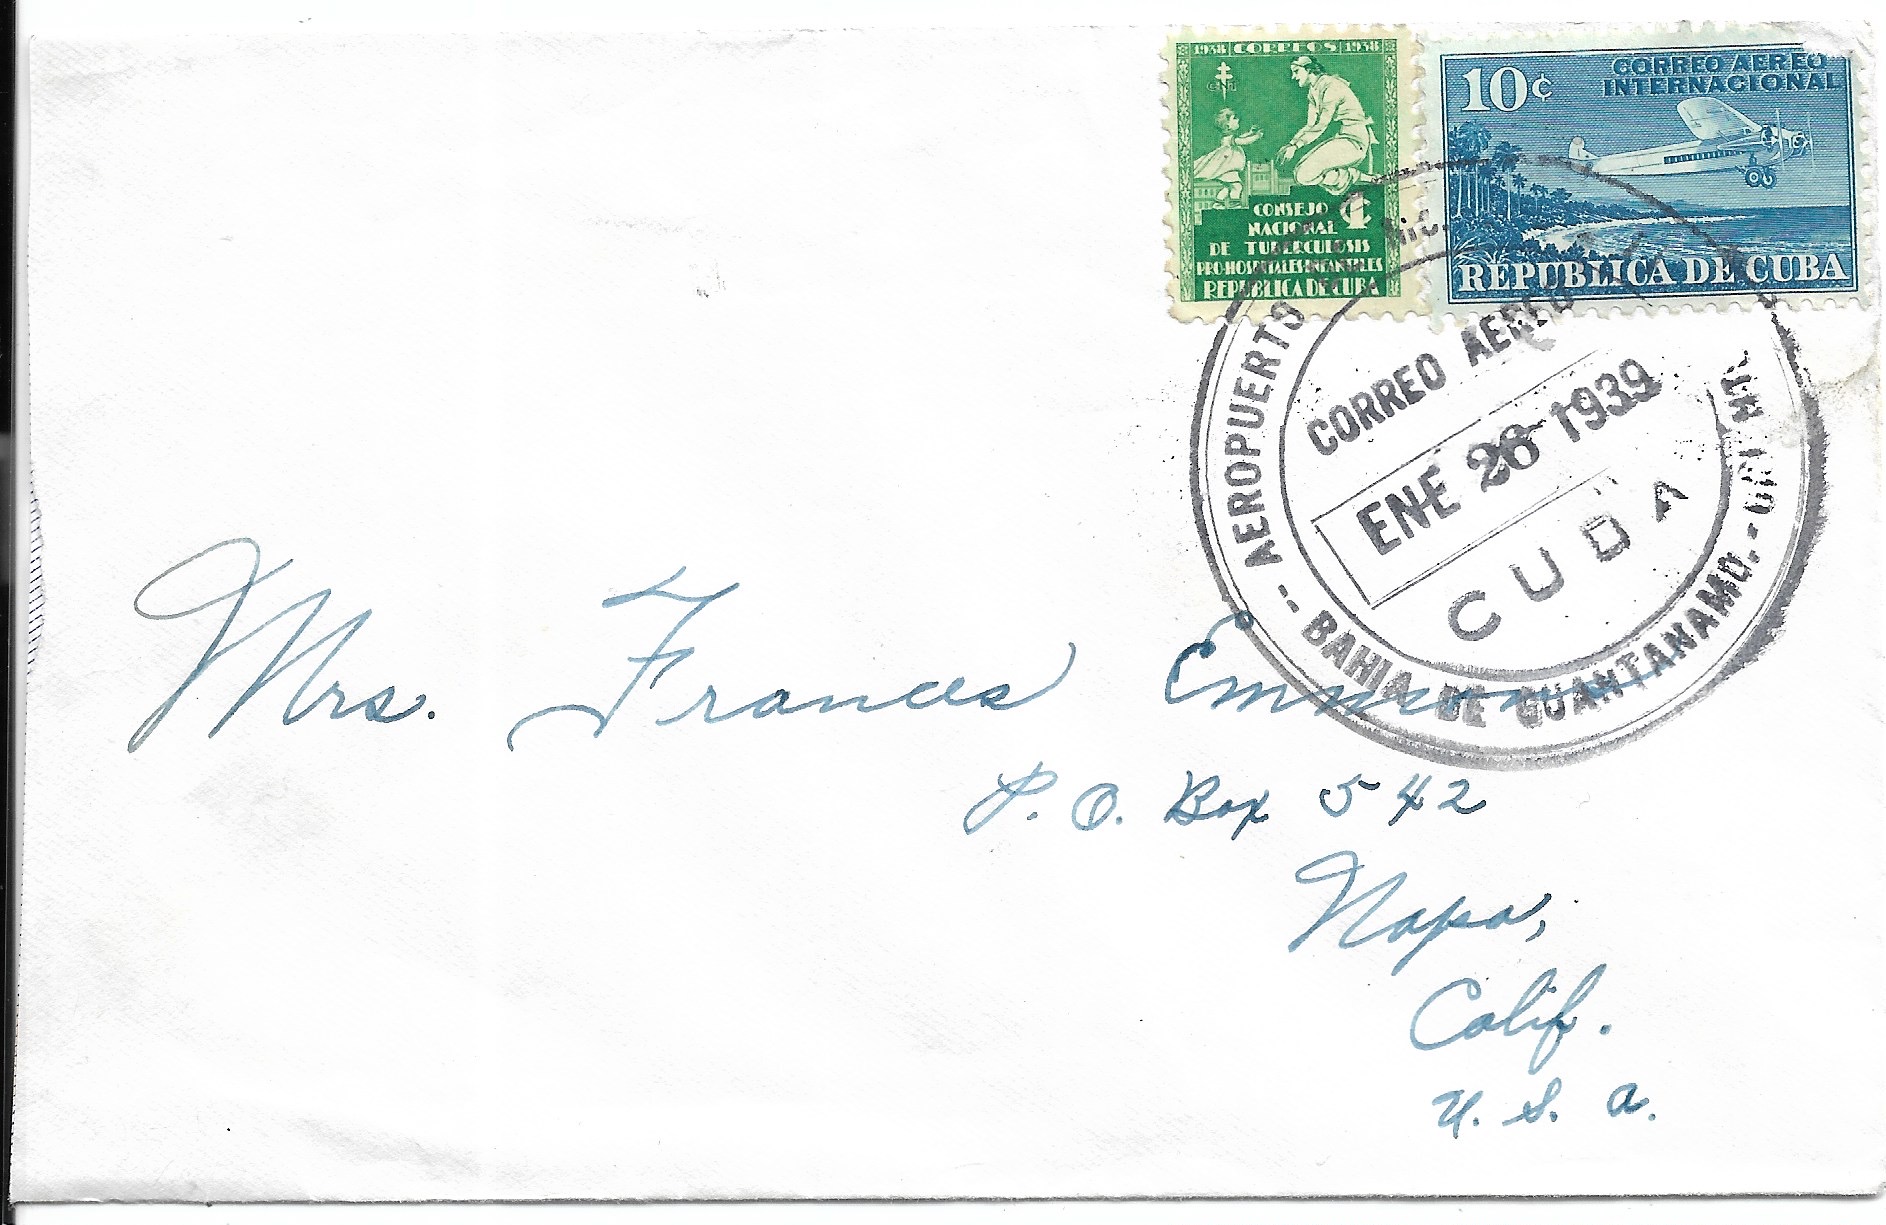 1938 CORREOS 1938
CONSEJO 1¢
NACIONAL
DE TUBERCULOSIS
PRO-HOSPITALES-INFANTILES
REPUBLICA DE CUBA
10¢
CORREO AEREO
INTERNACIONAL
REPUBLICA DE CUBA
AEROPUERTO
CORREO AEREO
ENE 26 1939
CUBA
-- BAHIA DE GUANTANAMO.-
Mrs. Frances
P. O. Box 542
Napa,
Calif.
U. S. A.